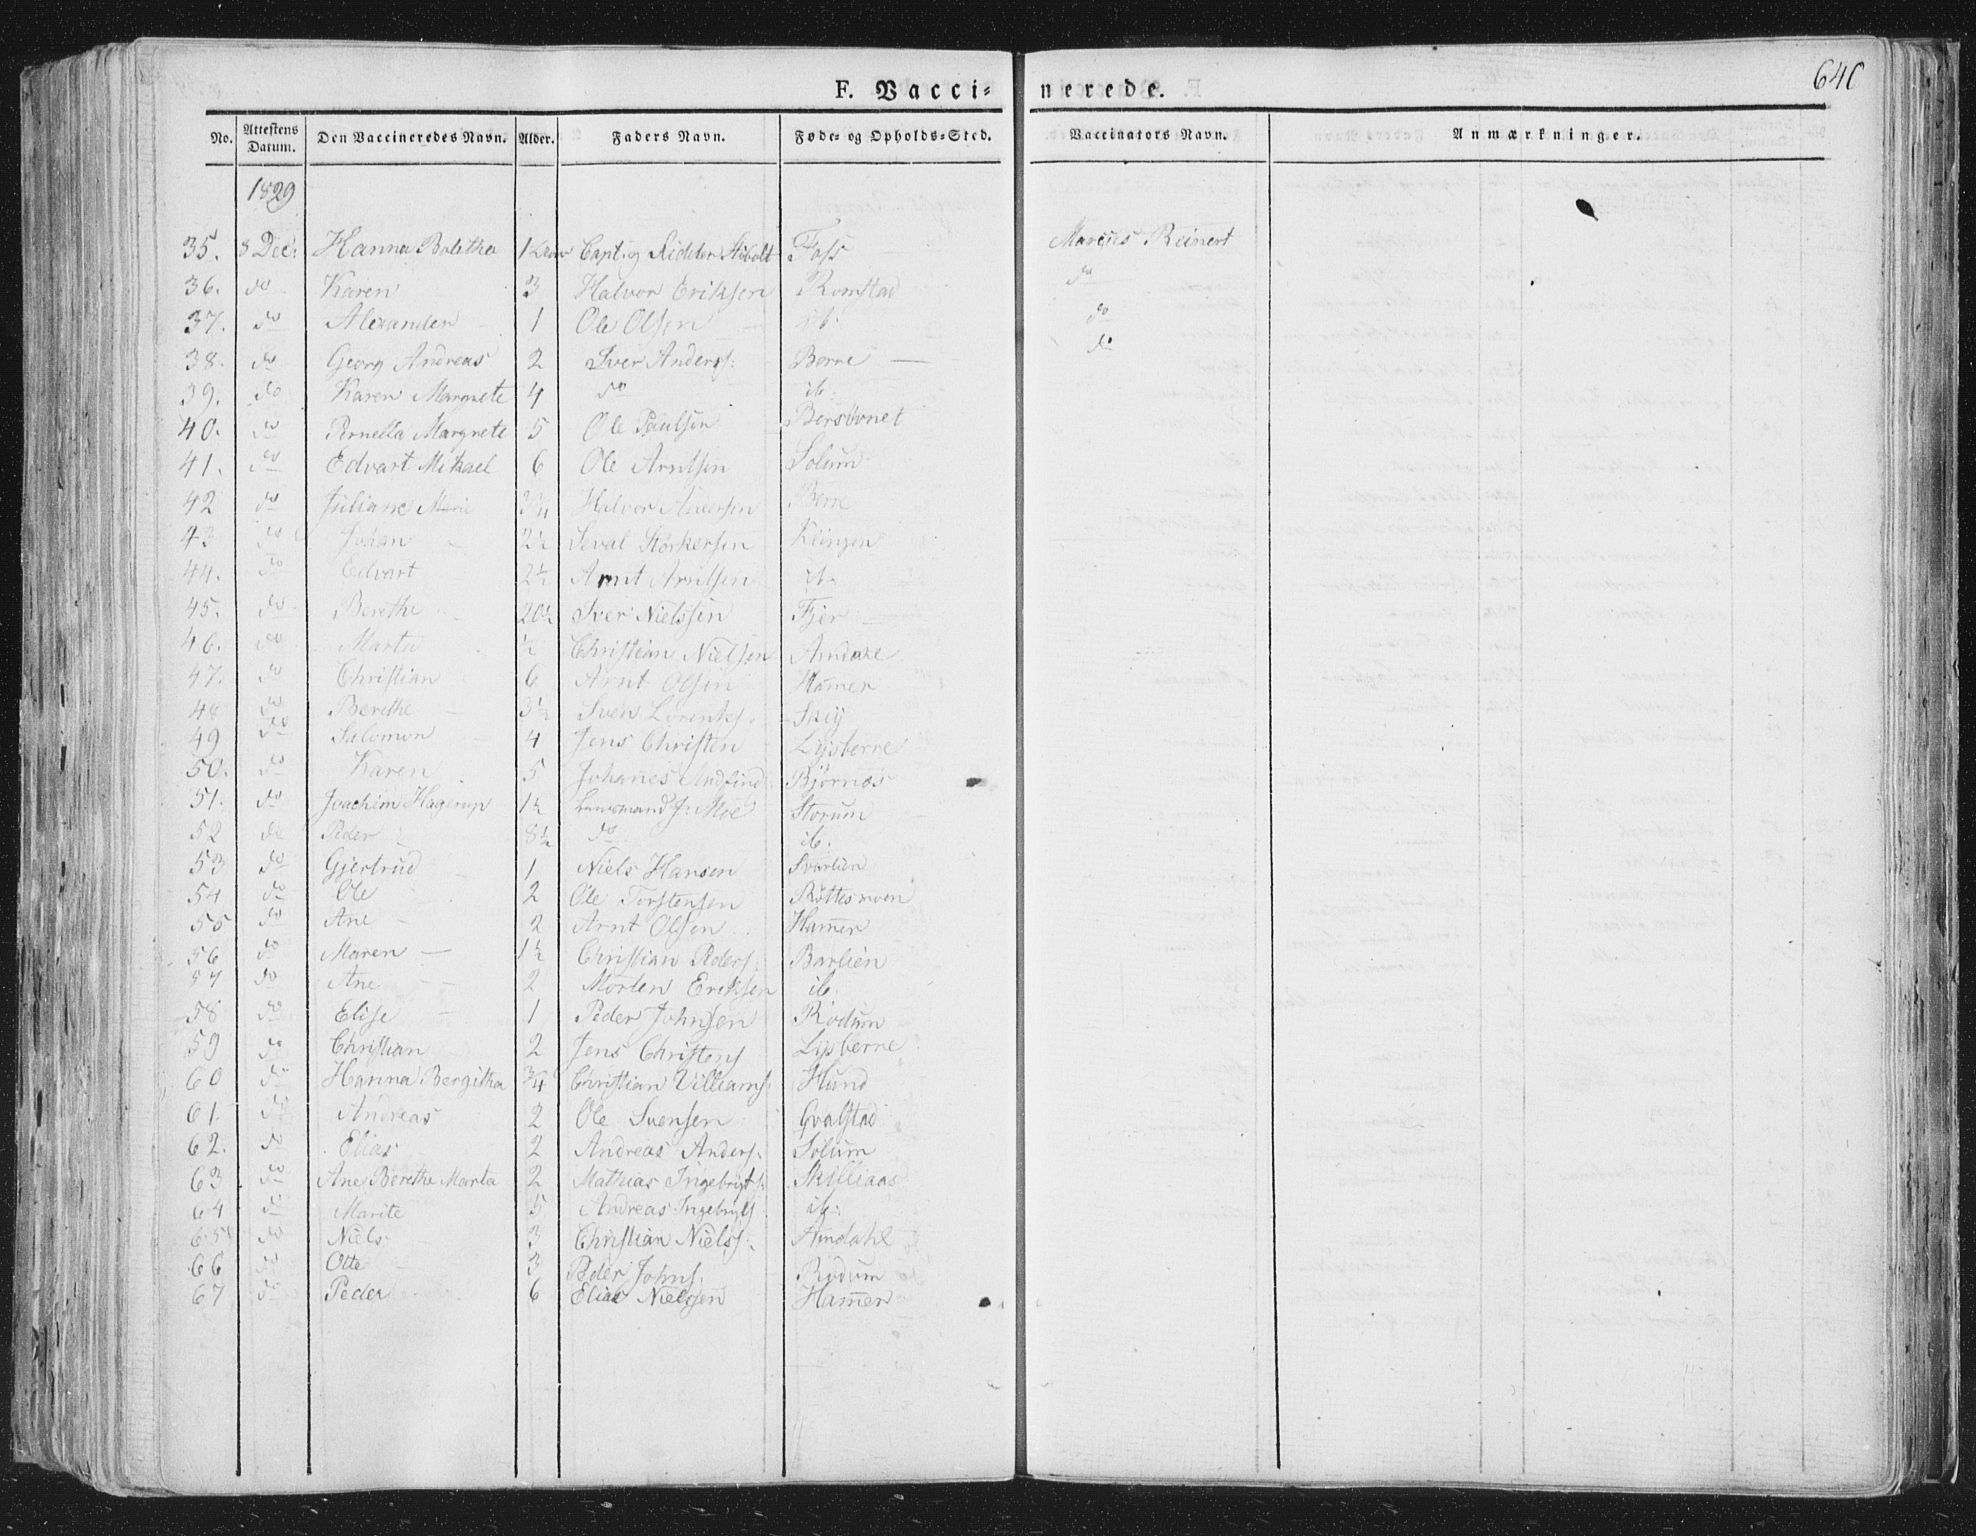 F. Vacci= nerede.
640
No. Attestens Datum. Den Vaccineredes Navn. Alder. Faders Navn. Føde- og Opholds-Sted. Vaccinators Navn. Anmærkninger.
1829
35. 8 Dec: Hanna Boletha 1 Capt. og Ridder Stibolt Foss Marcus Reinert
36. do Karen 3 Halvor Eriksen Romstad do
37. do Alexander 1 Ole Olsen ib. do
38. do Georg Andreas 2 Iver Anders: Borre do
39. do Karen Margrete 4 do ib.
40. do Pernella Margrete 5 Ole Paulsen Bersøvnet
41. do Edvart Mikael 6 Ole Arntsen Solum
42 do Juliane Marie 3/4 Halvor Andersen Berre
43 do Johan 2½ Seval Størkersen Klingen
44. do Edvart 2½ Arnt Arntsen ib.
45. do Berethe 20½ Iver Nielssen Fjer
46. do Marta ½ Christian Nielsen Amdahl
47. do Christian 6 Arnt Olsen Hamer
48 do Berethe 3½ Sven Lorents. Skij
49 do Salomon 4 Jens Christen Lysberre
50. do Karen 5 Johanes Andfind Bjørnøs
51. do Joachim Hagerup 1½ Lensmand J: Moe Storum
52 do Peder 8½ do ib.
53 do Gjertrud 1 Niels Hansen Svarlien
54 do Ole 2 Ole Torstensen Røttesmoen
55 do Ane 2 Arnt Olsen Hamer
56 do Maren 1½ Christian Peders. Barlien
57 do Ane 2 Morten Eriksen ib.
58 do Elise 1 Peder Johnsen Rødum
59 do Christian 2 Jens Christens Lysberre
60 do Hanna Bergitha 3/4 Christian Villiams. Hund
61. do Andreas 2 Ole Svensen Gvalstad
62. do Elias 2 Andreas Anders. Solum
63 do Ane Berethe Marta 2 Mathias Ingebrigts. Skilliaas
64 do Marite 5 Andreas Ingebrigts ib.
65 do Niels 3 Christian Niels: Amdahl
66 do Otte 3 Peder Johns. Rødum
67 do Peder 6 Elias Nielssen Hamer